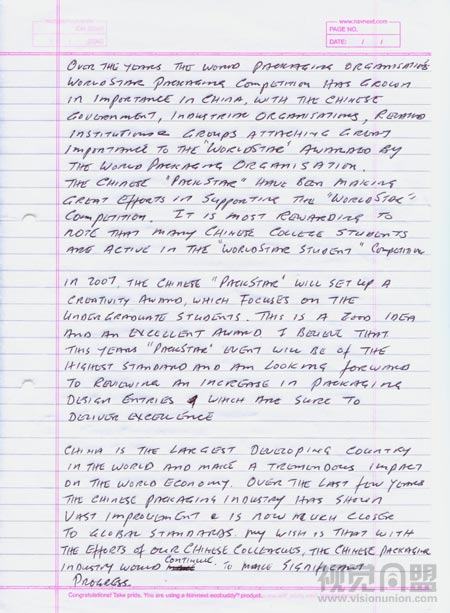 www.navneet.com
PAGE NO.
DATE: / /
OVER THE YEARS THE WORLD PACKAGING ORGANISATIONS
WORLDSTAR PACKAGING COMPETITION HAS GROWN
IN IMPORTANCE IN CHINA, WITH THE CHINESE
GOVERNMENT, INDUSTRIAL ORGANISATIONS, RELATED
INSTITUTIONS GROUPS ATTACHING GREAT
IMPORTANCE TO THE "WORLDSTAR" AWARDED BY
THE WORLD PACKAGING ORGANISATION.
THE CHINESE "PACKSTAR" HAVE BEEN MAKING
GREAT EFFORTS IN SUPPORTING THE "WORLDSTAR"
COMPETITION. IT IS MOST REWARDING TO
NOTE THAT MANY CHINESE COLLEGE STUDENTS
ARE ACTIVE IN THE "WORLDSTAR STUDENT" COMPETITION
IN 2007, THE CHINESE "PACKSTAR" WILL SET UP A
CREATIVITY AWARD, WHICH FOCUSES ON THE
UNDERGRADUATE STUDENTS. THIS IS A GOOD IDEA
AND AN EXCELLENT AWARD I BELIEVE THAT
THIS YEARS "PACKSTAR" EVENT WILL BE OF THE
HIGHEST STANDARD AND AM LOOKING FORWARD
TO REVIEWING AN INCREASE IN PACKAGING
DESIGN ENTRIES WHICH ARE SURE TO
DELIVER EXCELLENCE
CHINA IS THE LARGEST DEVELOPING COUNTRY
IN THE WORLD AND MAKE A TREMENDOUS IMPACT
ON THE WORLD ECONOMY. OVER THE LAST FEW YEARS
THE CHINESE PACKAGING INDUSTRY HAS SHOWN
VAST IMPROVEMENT & IS NOW MUCH CLOSER
TO GLOBAL STANDARDS. MY WISH IS THAT WITH
THE EFFORTS OF OUR CHINESE COLLEAGUES, THE CHINESE PACKAGING
INDUSTRY WOULD CONTINUE TO MAKE SIGNIFICANT
PROGRESS.
Congratulations! Take pride. You are using a Navneet ecobuddy™ product.
视觉同盟
www.visionunion.com